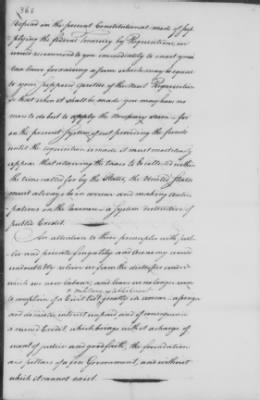 366
in the present Constitutional mode of sup
plying the federal Treasury by Requisition,
recommend to you immediately to enact your
tax laws for raising a sum which may be equal
to your supposed quotas of the next Requisition
so that when it shall be made you may have no
more to do but to apply the
on the present system, not providing the funds
until the requisition is made it must most
appear that
the time called for by the States, the United States
must always be in arrear and making antici
pations on the a system destructive of
public Credit.
An attention to these principles with jus
tice and private frugality and œconomy would
undoubtedly relieve us from the distresses under
which we now labour; and leave us no longer room
a military establishment
to complain of a Civil list greatly in arrear
and an interest unpaid and of consequence
a ruined Credit, which brings with it a charge of
want of justice and good faith, the foundation
and pillars of a free Government, and without
which it cannot exist.